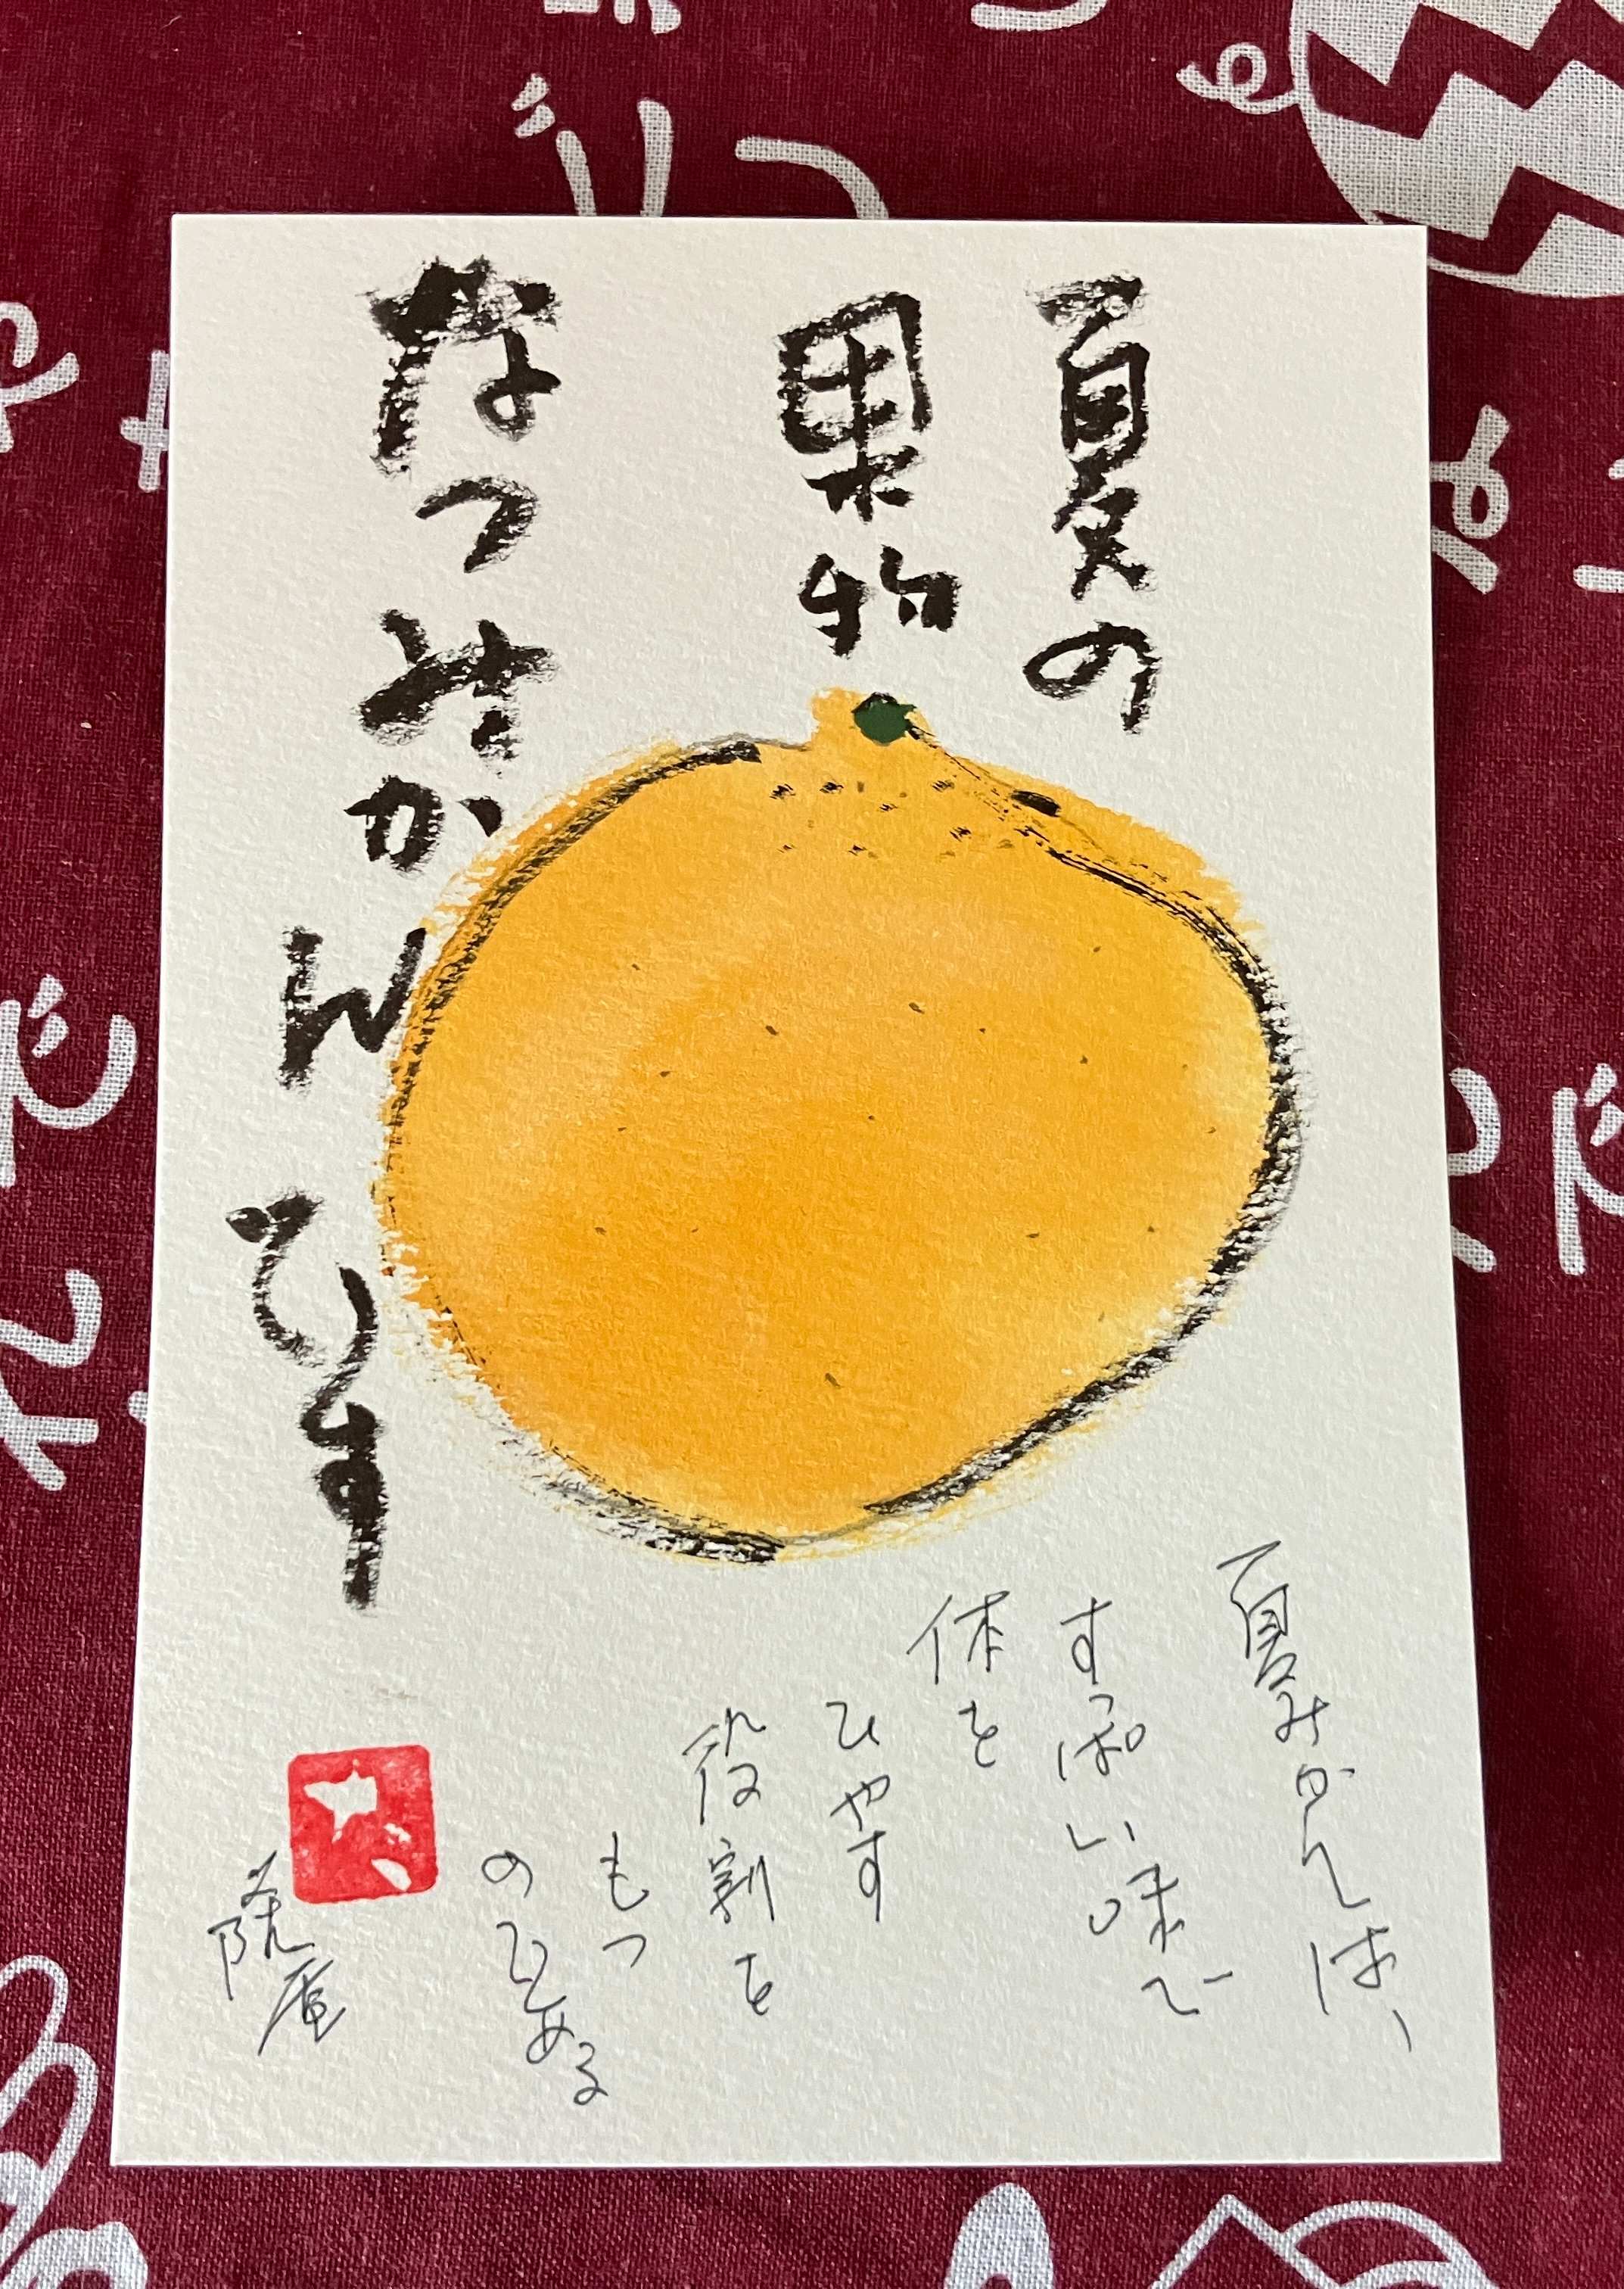 夏の
果物
なつみかん
です
夏みかんは、
すっぱい味で
体を
ひやす
役割を
もつ
のである